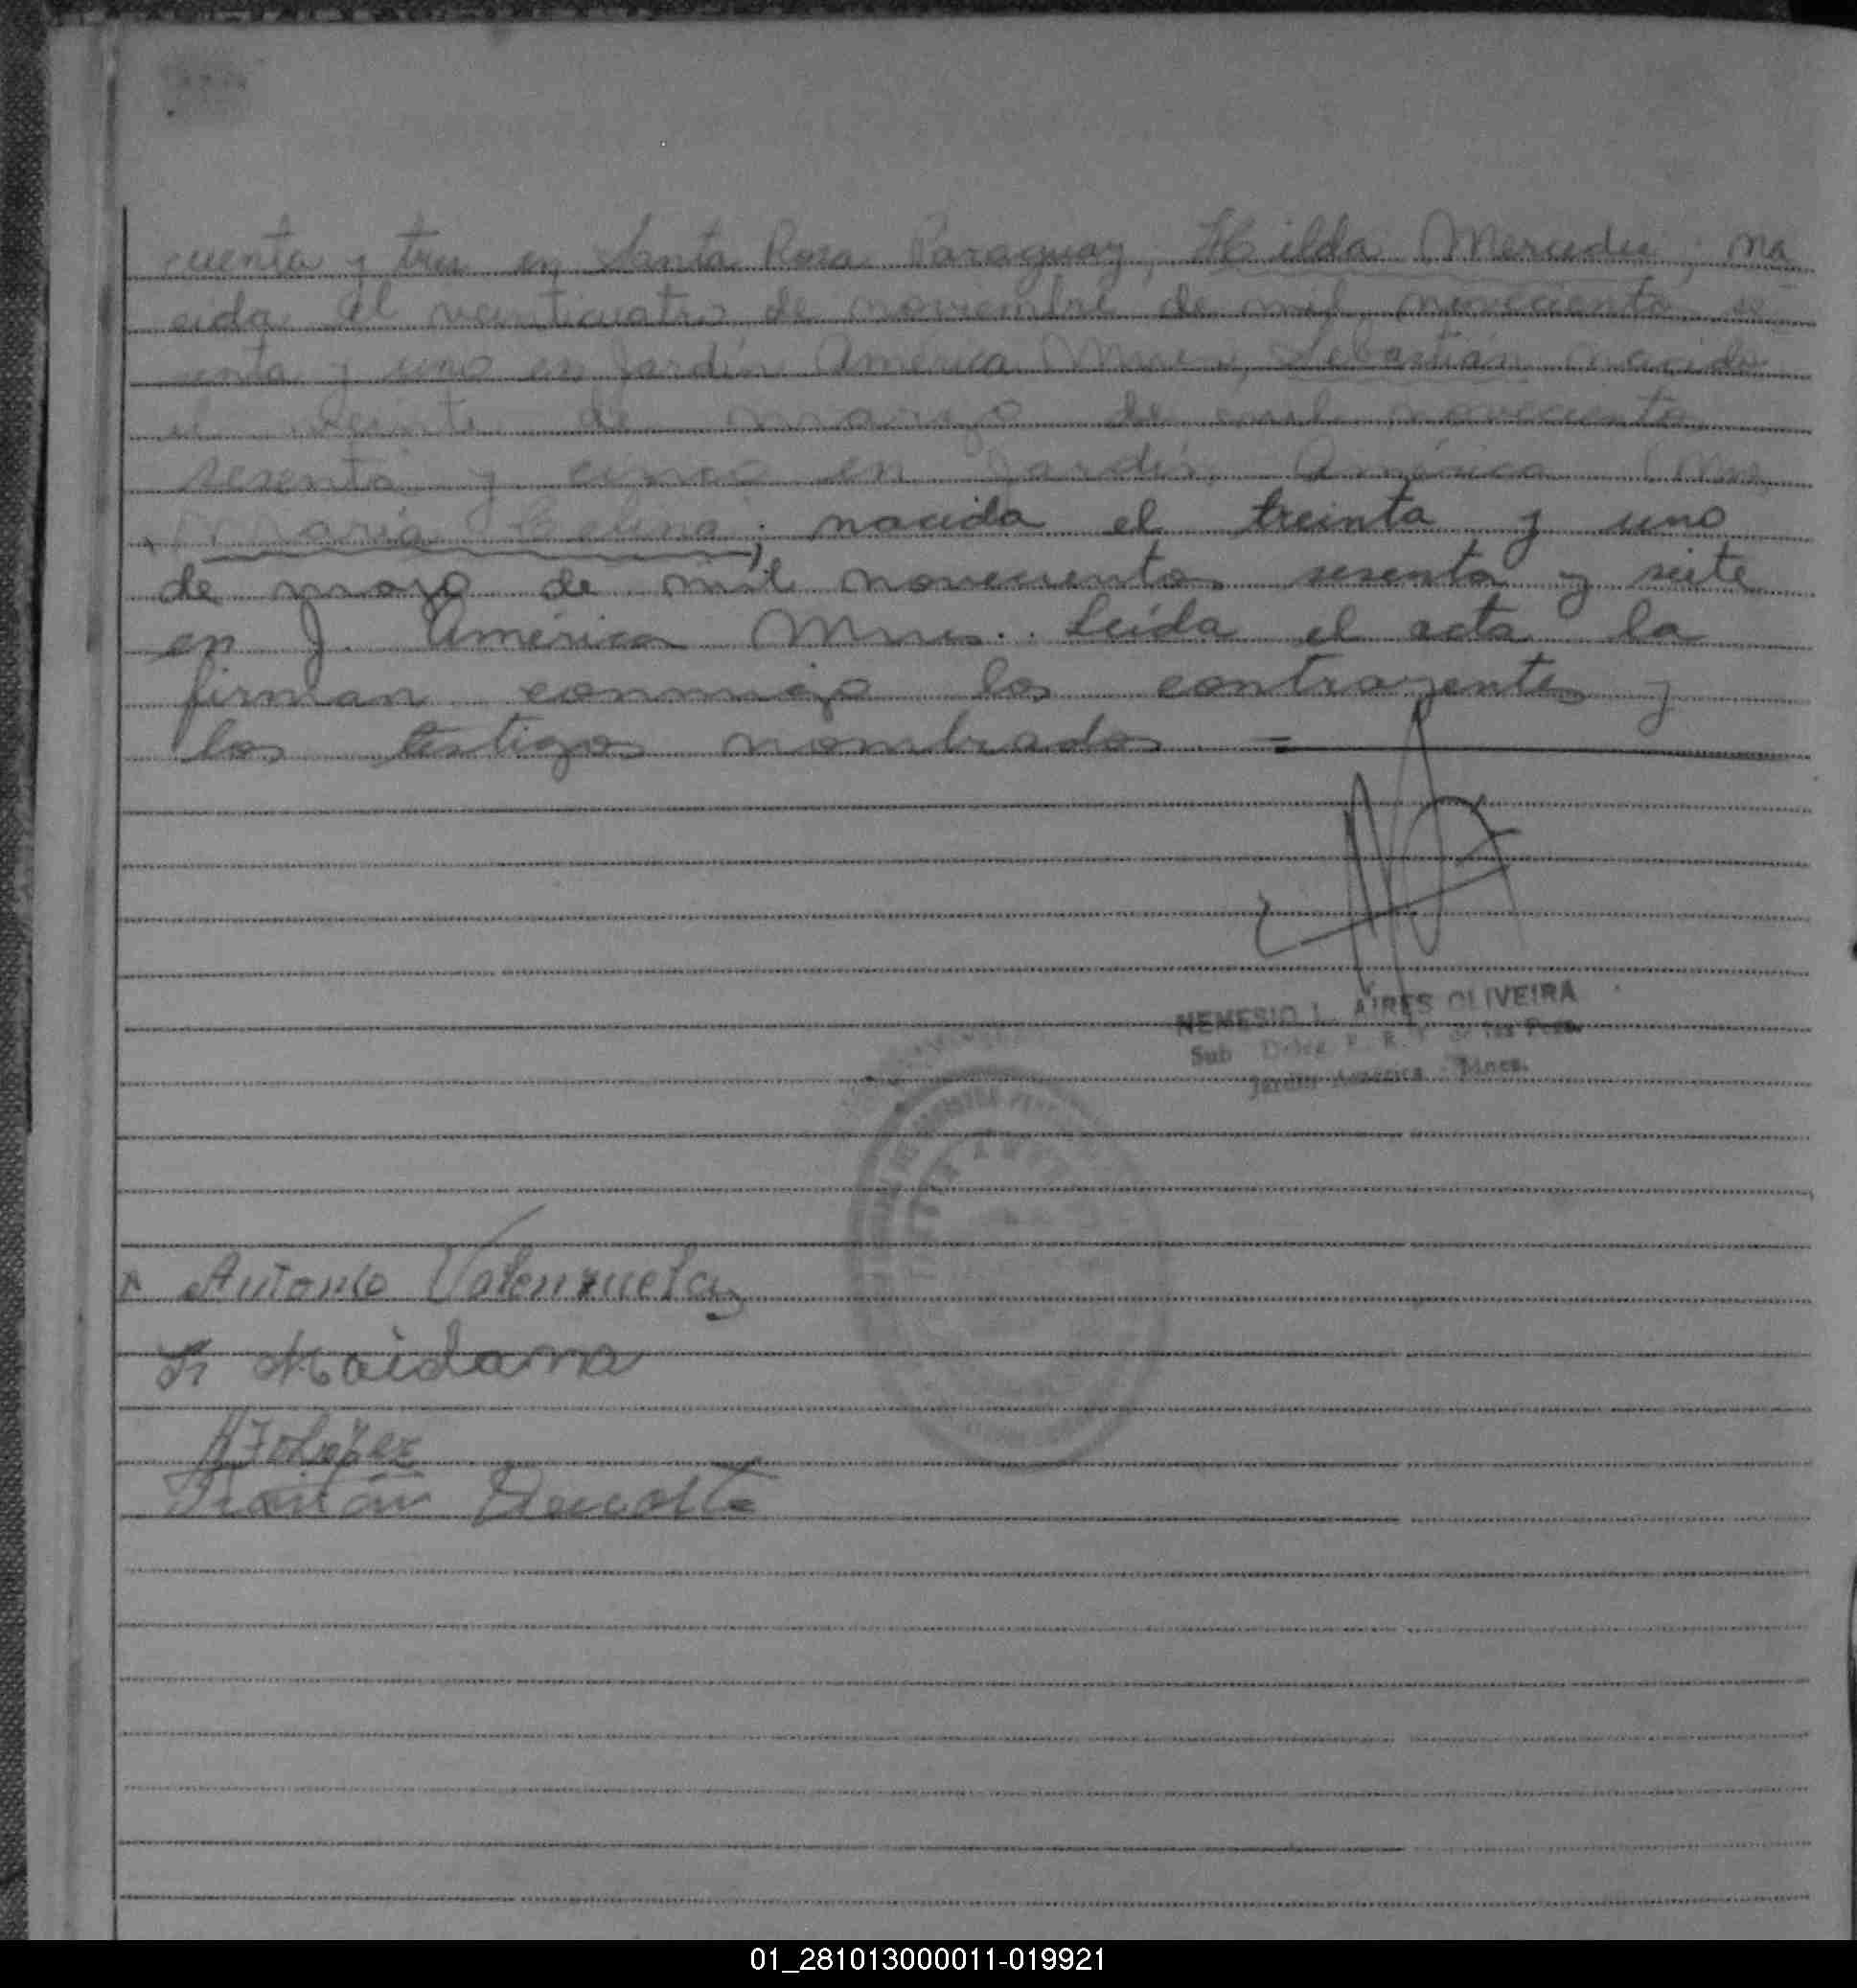 cuenta y tres en Santa Rosa Paraguay, Hilda Mercedes, na
cida el veinticuatro de noviembre de mil novecientos se
senta y uno en Jardín América Mnes, Sebastián nacido
el veinte de marzo de mil novecientos
sesenta y cinco en Jardín América Mnes
y María Celina; nacida el treinta y uno
de mayo de mil novecientos sesenta y siete
en J. América Mnes. Leída el acta la
firman conmigo los contrayentes y
los testigos nombrados =
NEMESIO L. AIRES OLIVEIRA
Sub Deleg. R. R. P. de las Pers.
Jardín América - Mnes.
Antonio Valenzuela
Maidana
López
01_281013000011-019921